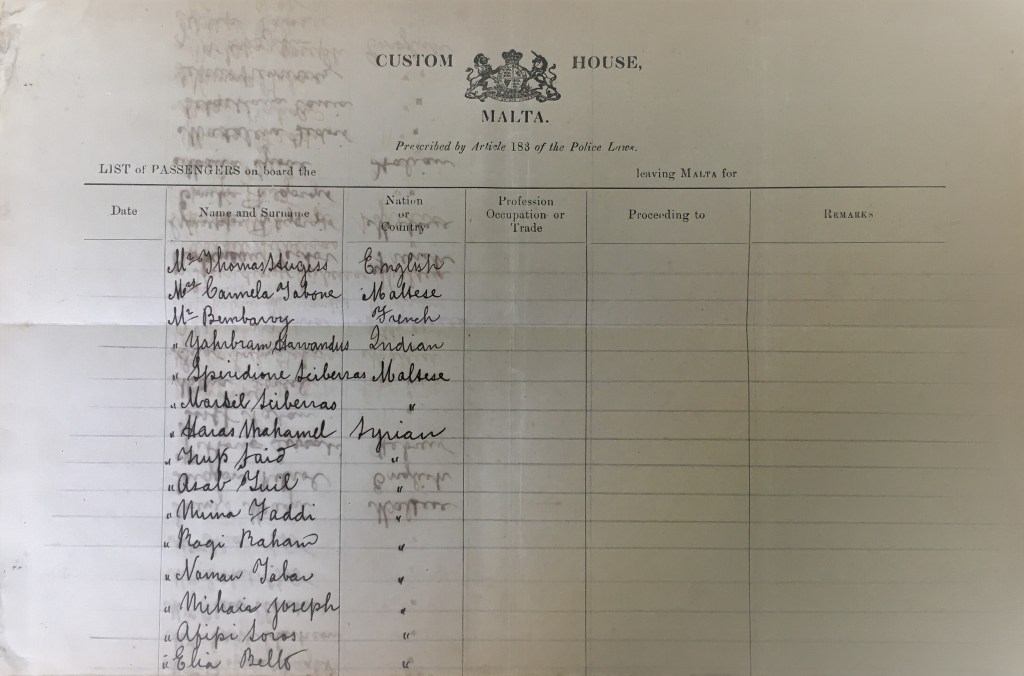 CUSTOM HOUSE,
MALTA.
Prescribed by Article 183 of the Police Laws.
LIST of PASSENGERS on board the leaving MALTA for
Date Name and Surname Nation or Country Profession Occupation or Trade Proceeding to REMARKS
Mr Thomas Hugess English
Mrs Carmela Tabone Maltese
Mr Bembarvy French
" Yahrbram Harvandus Indian
" Speridione Sciberras Maltese
" Marsel Sciberras "
" Haras Mahamel Syrian
" Said "
" Asab "
" Mima Faddi "
" Ragi Raham "
" Naman Tabar "
" Mihair Joseph "
" Afipi Soros "
" Elia Bello "